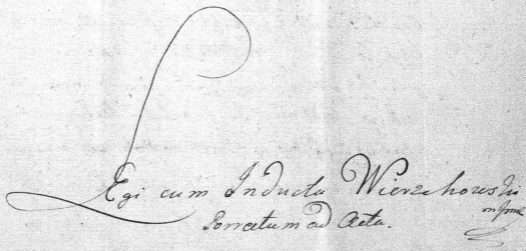 Legi cum Inducta Wierzchowski
mpria
Porrectum ad Acta.